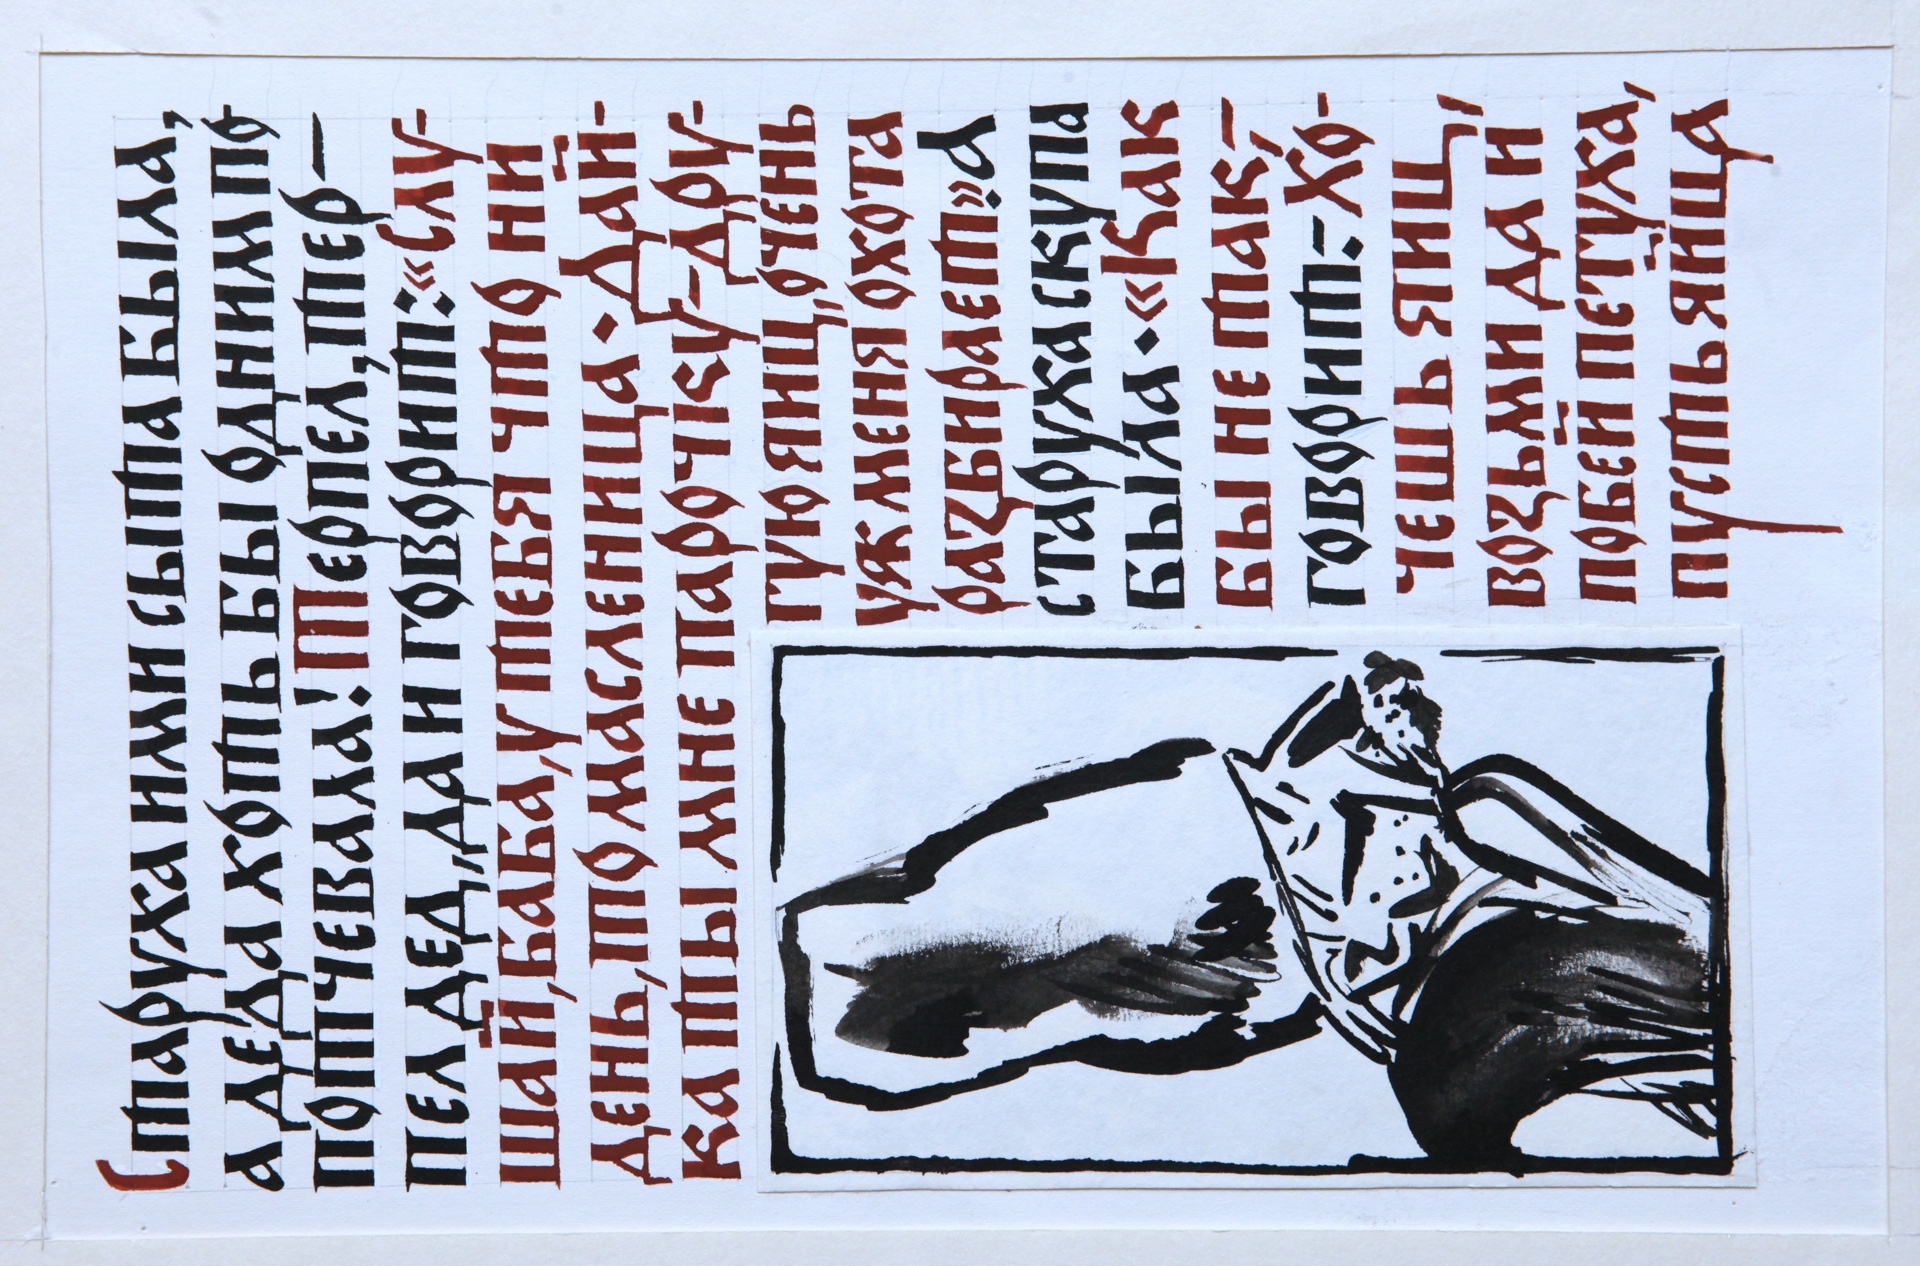 Старуха ими сыта была,
а деда хоть бы одним по
потчевала! Терпел, тер-
пел дед, да и говорит: «Слу-
шай, баба, у тебя что ни
день, то масленица. Дай-
ка ты мне парочку-дру-
гую яиц, очень
уж меня охота
разбирает». А
старуха скупа
была. «Как
бы не так,-
говорит:- Хо-
чешь яиц,
возьми да и
побей петуха,
пусть яйца